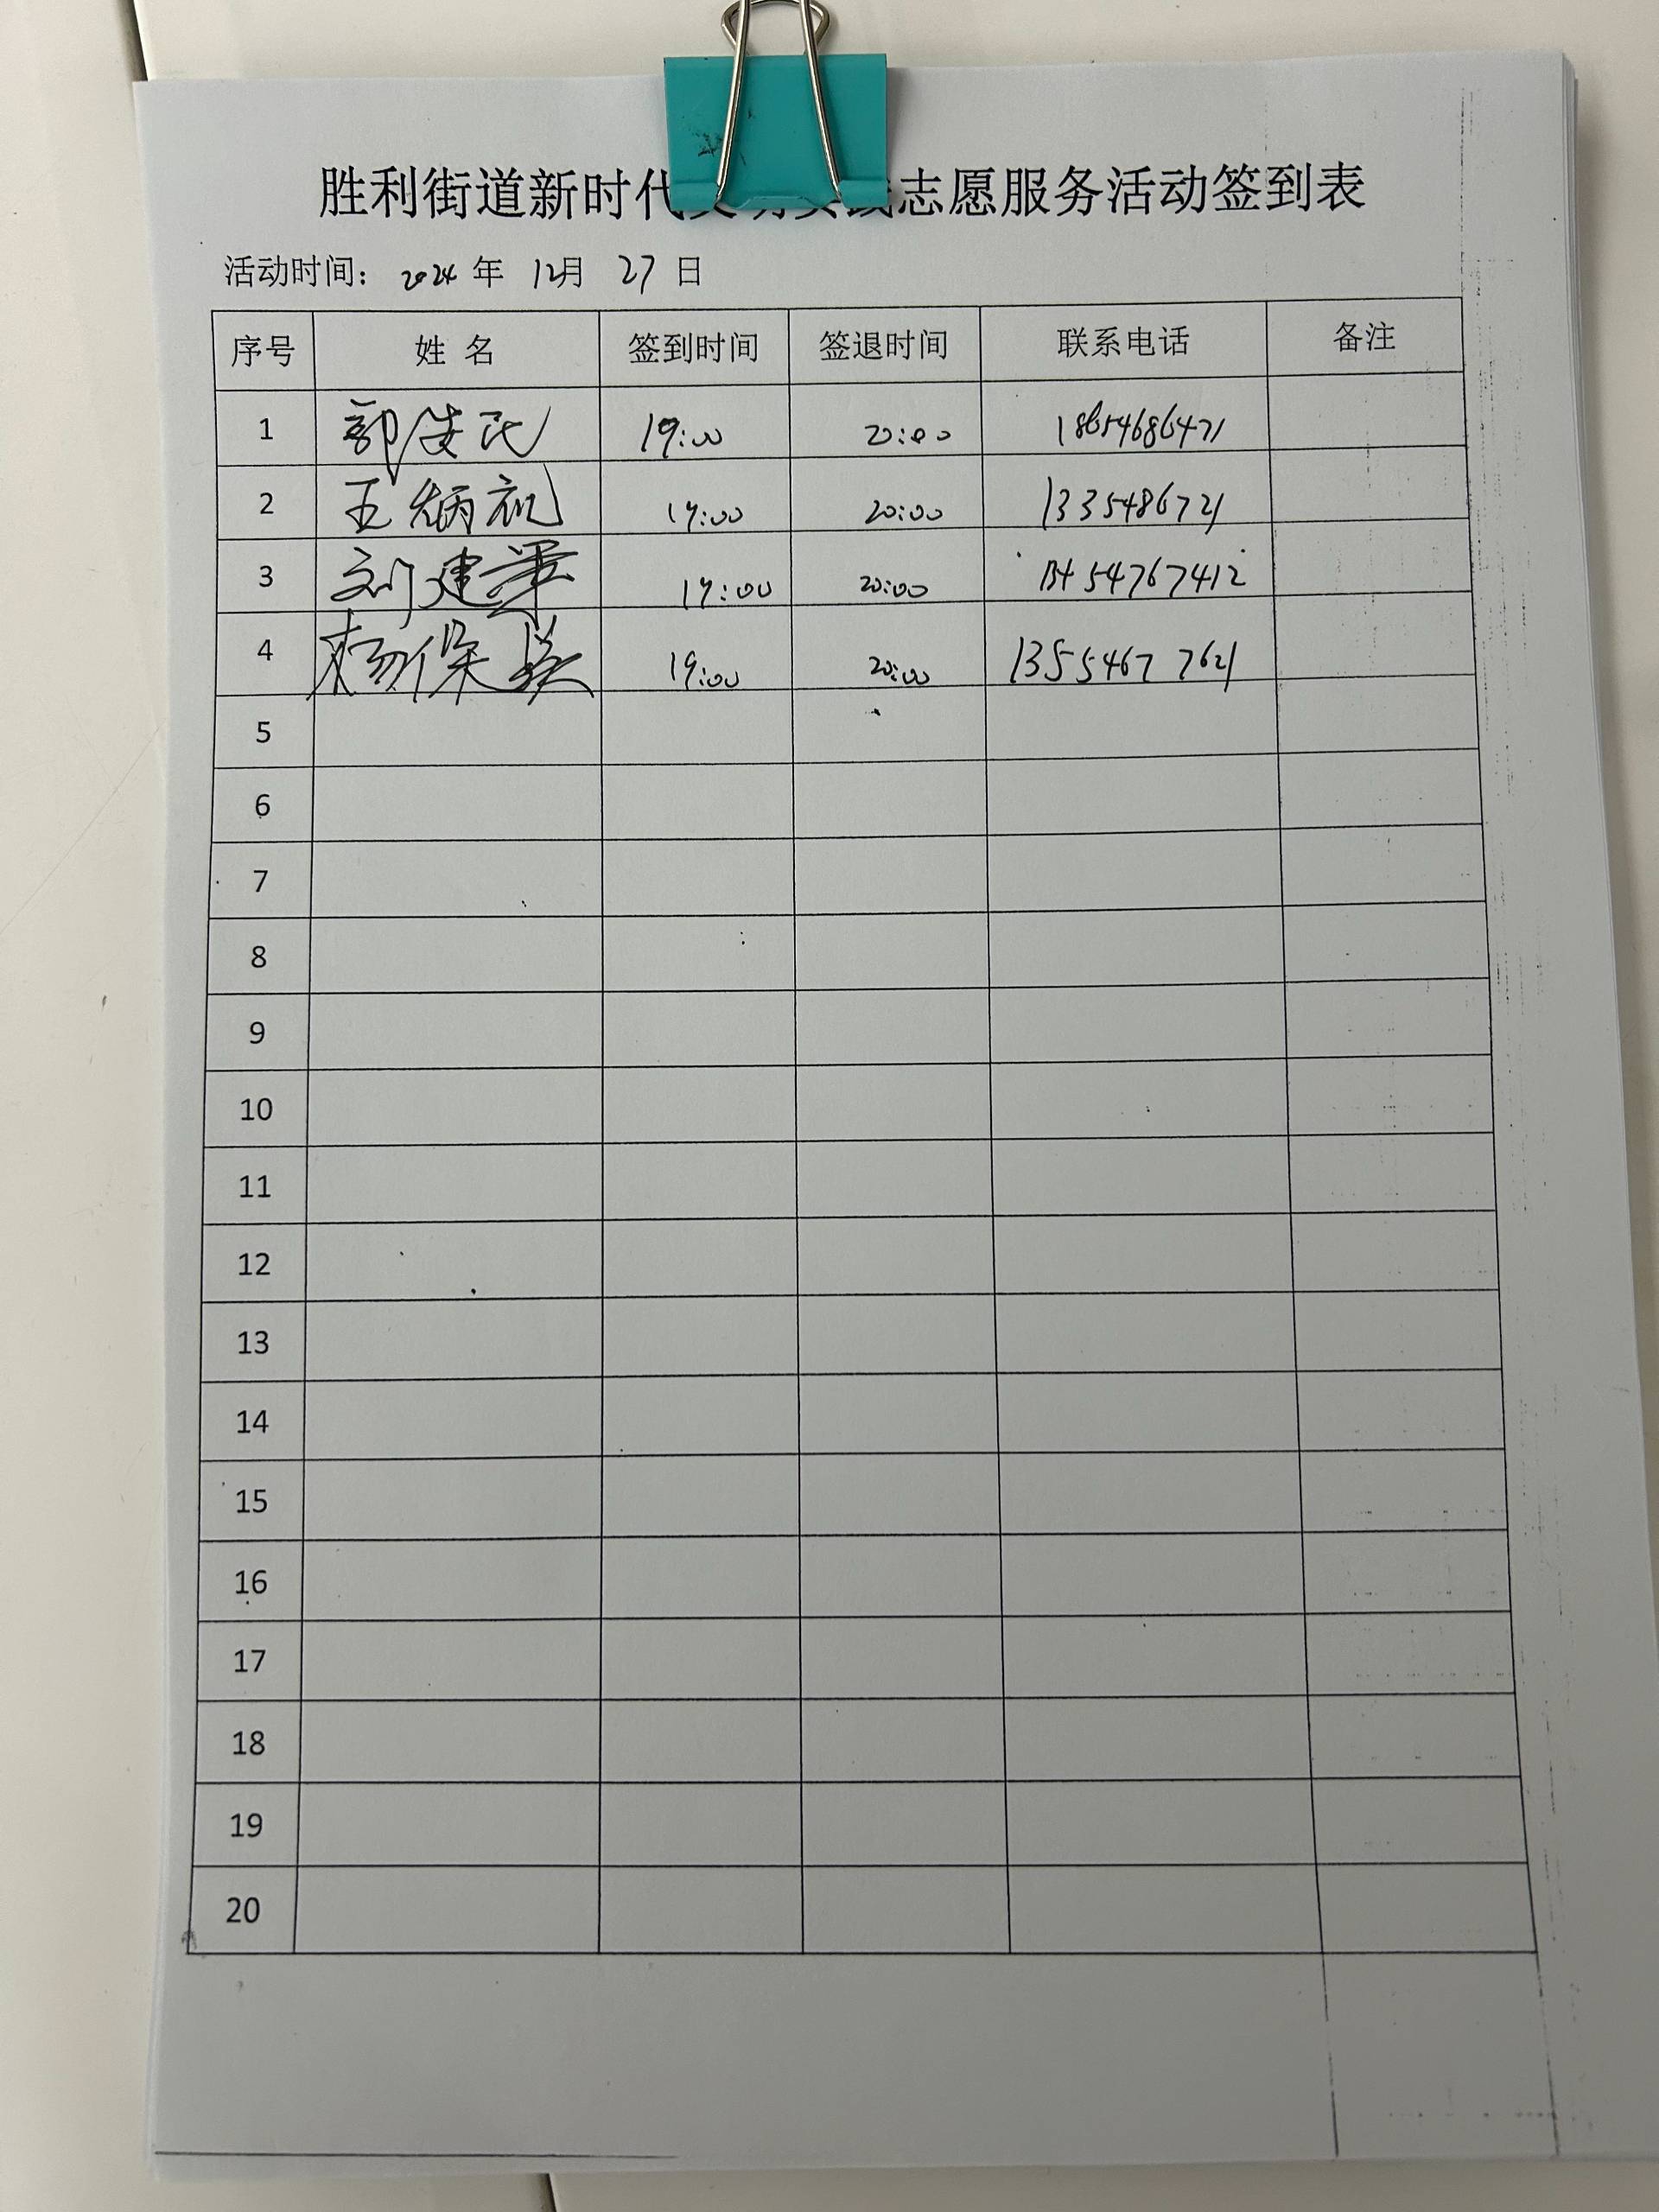 胜利街道新时代文明实践志愿服务活动签到表
活动时间： 2024 年 12月 27 日
序号 姓 名 签到时间 签退时间 联系电话 备注
1 郭俊民 19:00 20:00 18654686471
2 王炳礼 19:00 20:00 1335486721
3 刘建军 19:00 20:00
4 杨保 19:00 20:00 13554677621
5
6
7
8
9
10
11
12
13
14
15
16
17
18
19
20